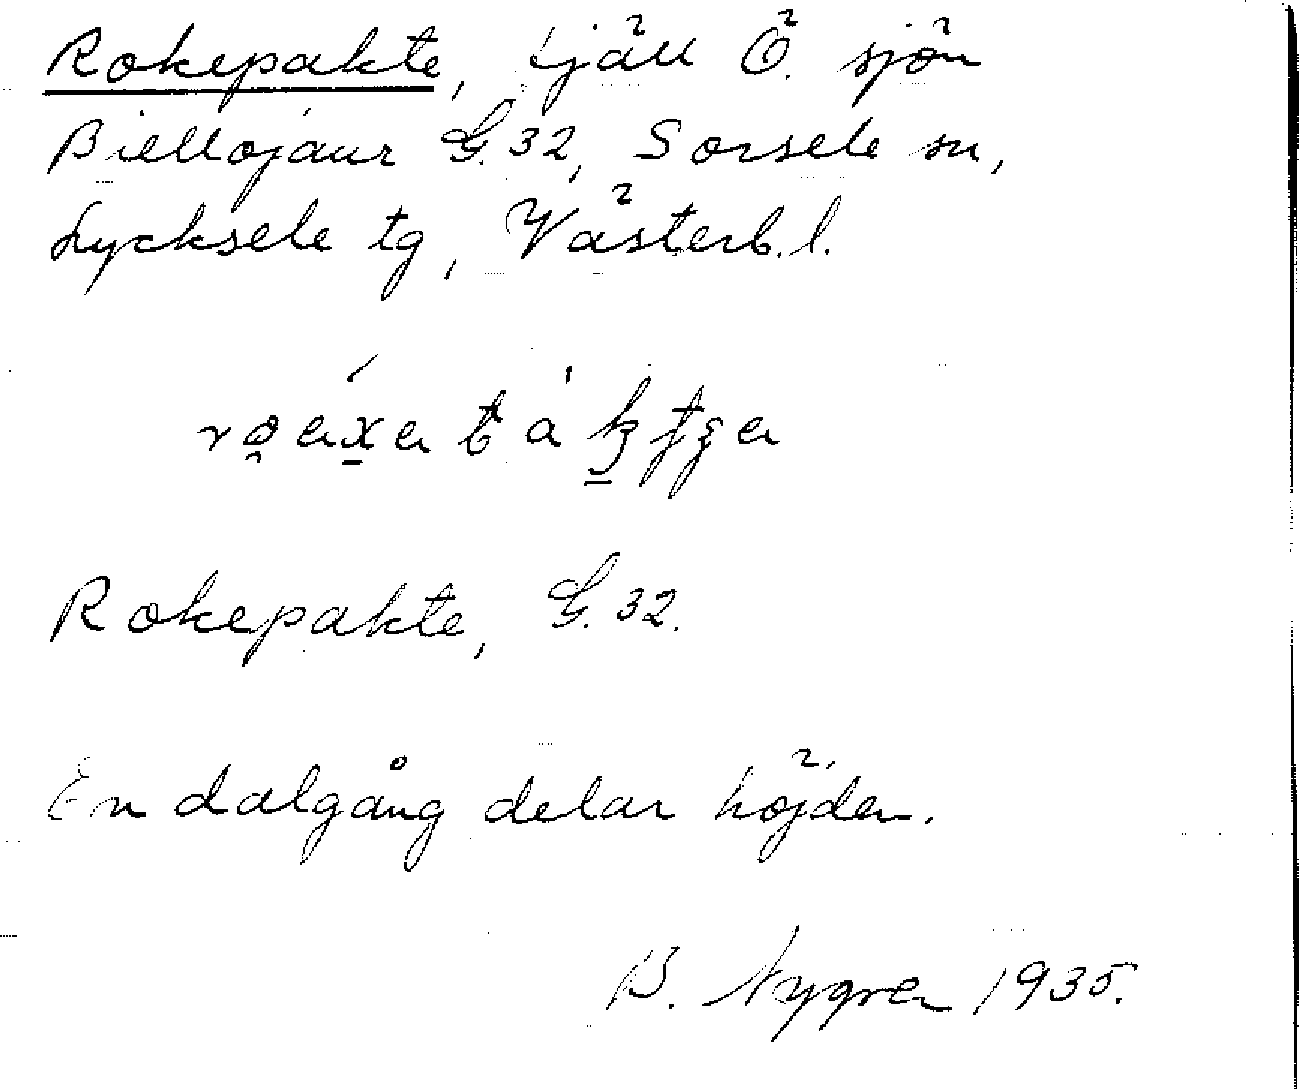 Rokepakte, fjäll Ö. sjön
Biellojaur G.32, Sorsele sn,
Lycksele tg, Västerb. l.
Rokepakte, G.32.
En dalgång delar höjden.
B. Nygren 1935.